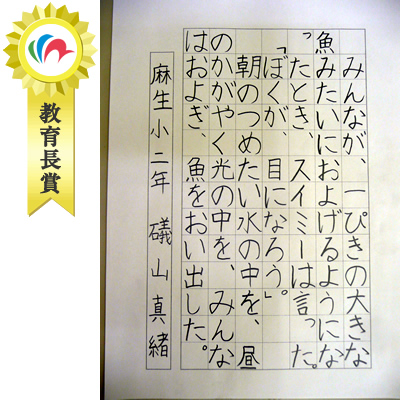 教育長賞
みんなが、一ぴきの大きな
魚みたいにおよげるようにな
ったとき、スイミーは言った。
「ぼくが、目になろう。」
朝のつめたい水の中を、昼
のかがやく光の中を、みんな
はおよぎ、魚をおい出した。
麻生小二年 礒山真緒